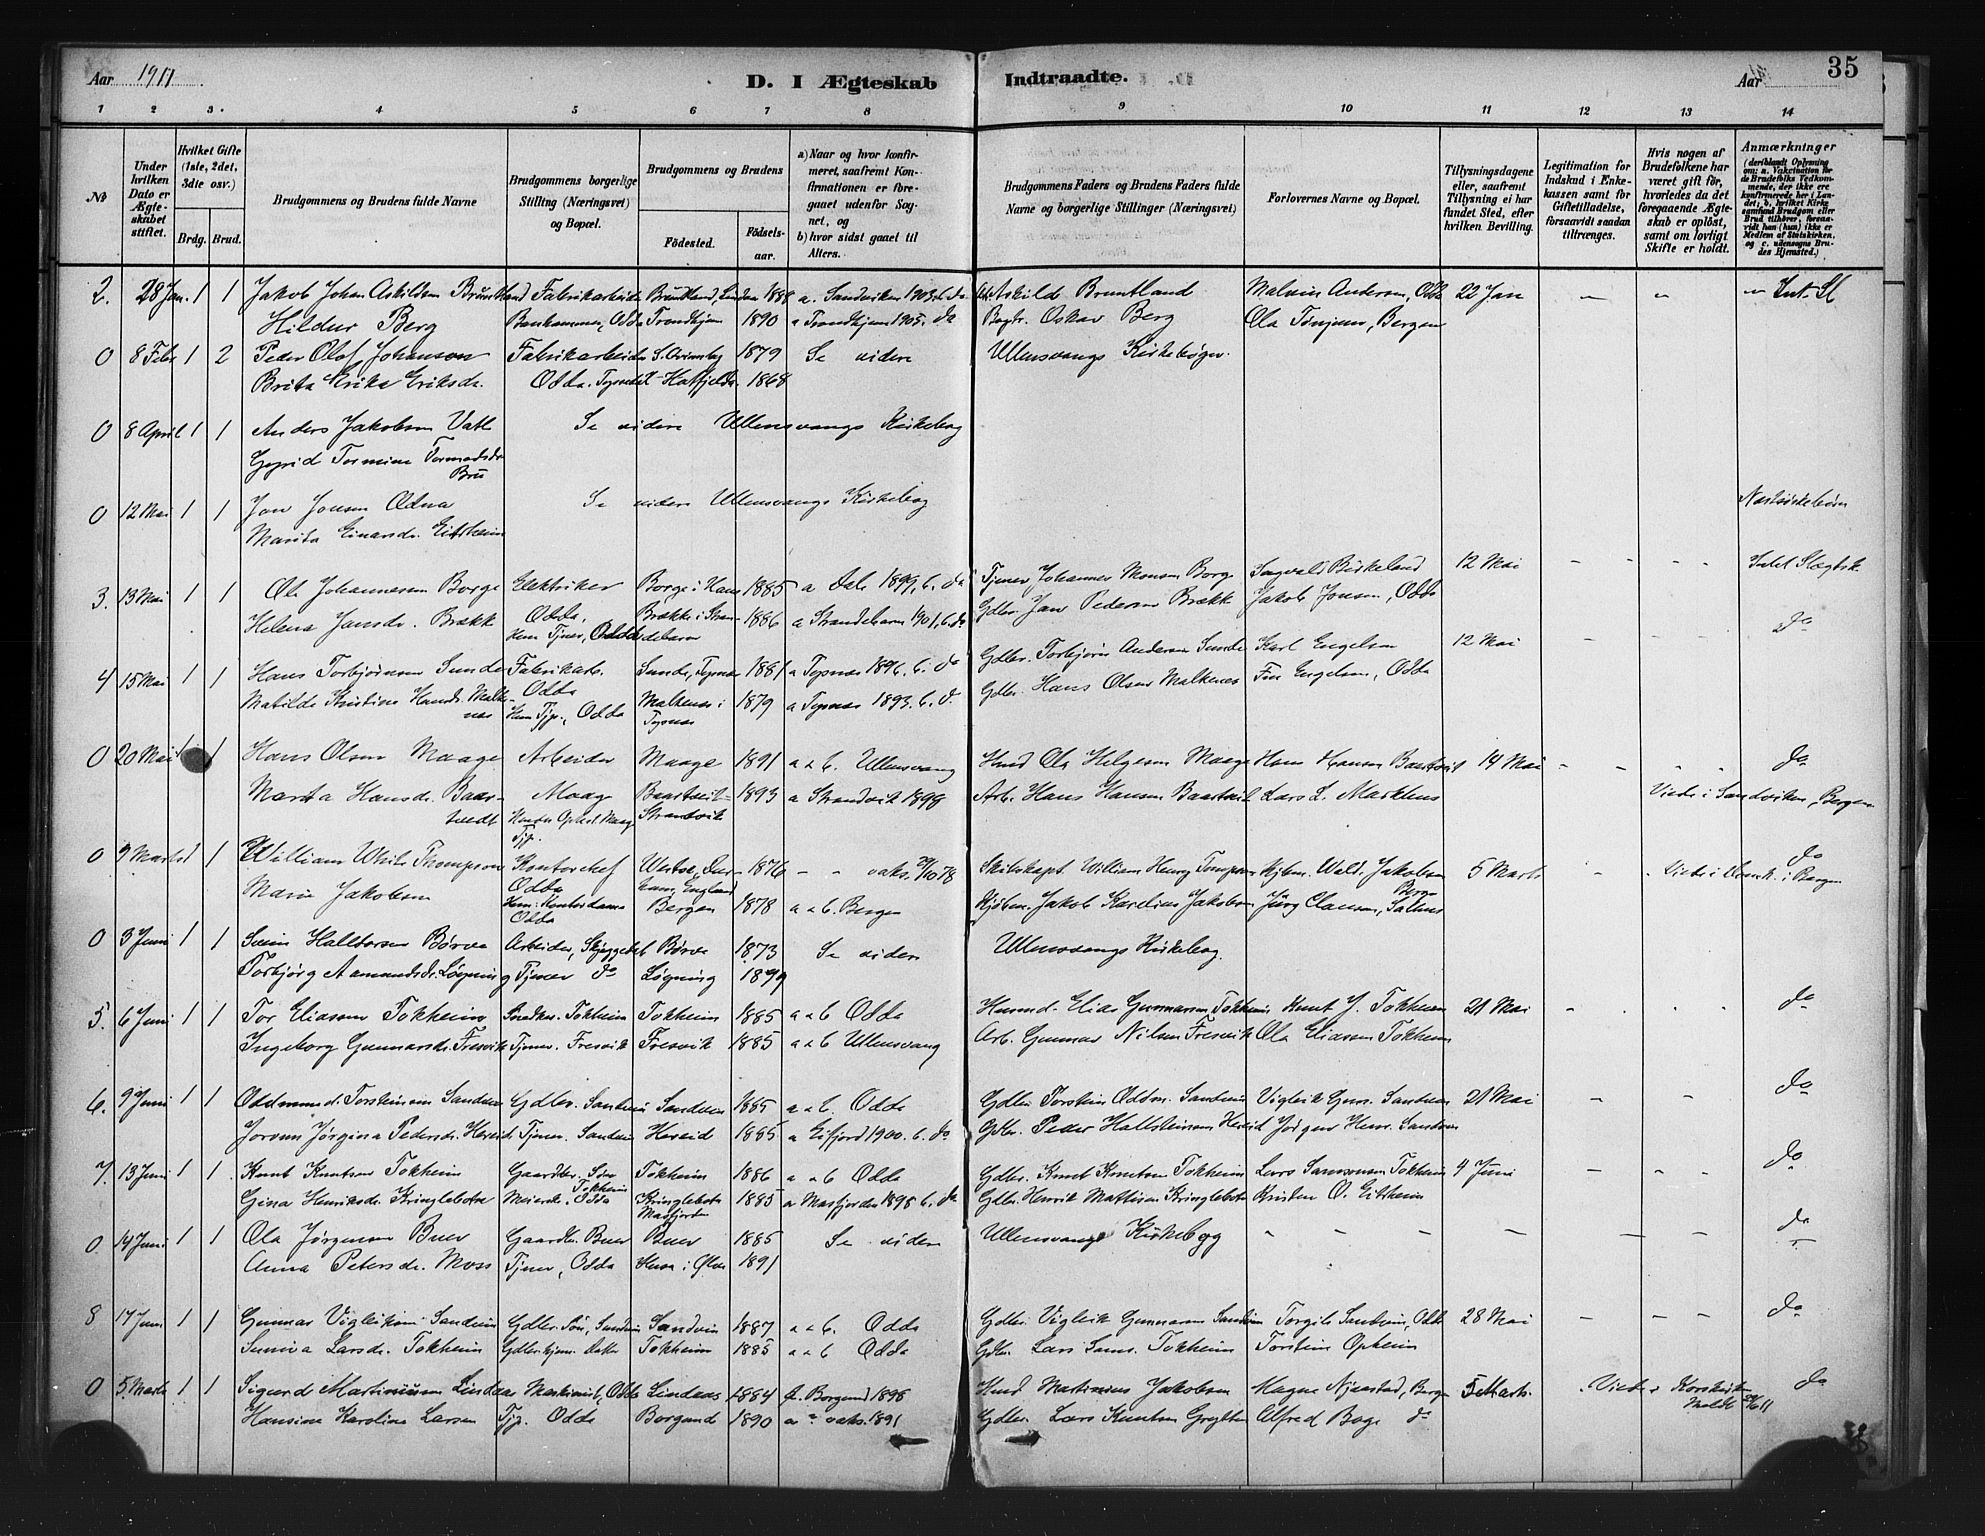 Aar 1911
D. I Ægteskab Indtraadte.
Aar 35
1 2 3. 4 5 6 7 8 9 10 11 12 13 14
№
Under hvilken Dato er Ægteskabet stiftet.
Hvilket Gifte (1ste, 2det, 3die osv.)
Brdg. Brud.
Brudgommens og Brudens fulde Navne
Brudgommens borgerlige Stilling (Næringsvei) og Bopæl.
Brudgommens og Brudens
Fødested. Fødselsaar.
a) Naar og hvor konfirmeret, saafremt Konfirmationen er foregaaet udenfor Sognet, og
b) hvor sidst gaaet til Alters.
Brudgommens Faders og Brudens Faders fulde Navne og borgerlige Stillinger (Næringsvei)
Forlovernes Navne og Bopæl.
Tillysningsdagene eller, saafremt Tillysning ei har fundet Sted, efter hvilken Bevilling.
Legitimation for Indskud i Enkekassen samt for Giftetilladelse, forsaavidt saadan tiltrænges.
Hvis nogen af Brudefolkene har været gift før, hvorledes da det foregaaende Ægteskab er opløst, samt om lovligt Skifte er holdt.
Anmærkninger
(deriblandt Oplysning om: a. Vaccination for de Brudefolks Vedkommende, der ikke ere konfirmerede her i Landet; b. hvilket Kirkesamfund Brudgom eller Brud tilhører, forsaavidt han (hun) ikke er Medlem af Statskirken, og c. udensogns Brudes Hjemsted.)
2. 28 Jan. 1 1 Jakob Johan Askildsen Bruntland Fabrikarbeider Bruntland, Lindaas 1888 a. Sandviken 1903. b. do Askild Bruntland Malvin Andersen, Odda 22 Jan – " " Int. Sl
Hildur Berg Odda Trondhjem 1890 a Trondhjem 1905. do Oskar Berg Ola Tonjum, Bergen
0 8 Febr 1 2 Peder Olof Johanson Fabrikarbeider 1879 Se videre Ullensvangs Kirkebøger.
Brita Erika Eriksdr. Odda. 1868
0 8 April 1 1 Anders Jakobsen Vatle Se videre Ullensvangs Kirkebog
Gyrid Tormine Tormodsdr Bru
0 12 Mai 1 1 Jon Jonsen Odna Se videre Ullensvangs Kirkebog
Marita Einarsdr. Eitrheim
3. 13 Mai 1 1 Ole Johannessen Borge Elektriker Borge i 1885 a Dale 1899, b. do Tjener Johannes Monsen Borge Birkeland 12 Mai – – – Intet Slægtsk.
Helena Jansdr. Brække Odda, Brække i Strandebarm 1886 a Strandebarm 1901, b. do Gdbr. Jan Pedersen Brække Jakob Jonsen, Odda
Hun Tjener, Odda
4 15 Mai 1 1 Hans Torbjørnsen Sunde Fabrikarb. Sunde, Tysnes 1881 a Tysnes 1896. b. do Gdbr. Torbjørn Andersen Sunde Karl Engelsen 12 Mai – – – do
Matilde Kristine Hansdr. Malkenes Odda Malkenes i Tysnes 1879 a Tysnes 1893. b. do Gdbr. Hans Olsen Malkenes Finn Engelsen, Odda
Hun Tjr., Odda
0 20 Mai 1 1 Hans Olsen Maage Arbeider Maage 1891 a & b. Ullensvang Husmd Ole Helgesen Maage Hans Hansen Baartvedt 14 Mai – – do
Marta Hansdr. Baartvedt Maage Strandvik 1893 a Strandvik 1899 Arb. Hans Hansen Lars L. Viede i Sandviken, Bergen
0 9 Marts 1 William White Thompson Kontorchef England 1876 – – vaks. 21/10 78 Skibskapt. William Henry Tompson Kjbm. Wald. Jakobsen 5 Marts – . Viede i Bergen do
Marie Jakobsen Odda Bergen 1878 a & b. Bergen Kjøbm. Jakob Karelius Jakobsen Jørg Clausen,
Odda
0 3 Juni 1 1 Svein Halltorsen Børve Arbeider, Skjeggedal Børve 1873 Se videre Ullensvangs Kirkebog.
Torbjørg Aamundsdr. Løyning Tjener do Løyning
5. 6 Juni 1 1 Tor Eliassen Tokheim Snedker. Tokheim Tokheim 1885 a & b Odda Husmd. Elias Gunnarsen Tokheim Knut J. Tokheim 21 Mai – . . do
Ingeborg Gunnarsdr. Fresvik Tjener. Fresvik Fresvik 1885 a & b Ullensvang Arb. Gunnar Nilsen Fresvik Ola Eliassen Tokheim
6. 9 Juni 1 1 Oddmund Torsteinsen Sandven Gdbr. Sandven Sandven 1885 a & b. Odda Gdbr. Torstein Oddm. Sandven Viglik Gunn. Sandven 21 Mai – – – do
Jørgina Pedersdr. Hereid Tjener. Sandven Hereid 1885 a Eifjord 1900. b. do Gdbr. Peder Hallsteinsen Hereid Jørgen Hans. Sandven
7. 13 Juni 1 1. Knut Knutsen Tokheim Gaardbr. Søn Tokheim 1886 a & b Odda Gdbr. Knut Knutsen Tokheim Lars Samsonsen Tokheim 4 Juni – – – do
Gina Henriksdr. Kringlebotn Meierske, Odda Kringlebotn Masfjorden 1885 a Masfjorden 1898 b. do Gdbr. Henrik Mathisen Kringlebotn Kristen O. Eitrheim
0. 14 Juni 1 1 Ola Jørgensen Buer Gaardbr. Buer Buer 1885 Se videre Ullensvangs Kirkebog – – – – – do
Anna Petersdr. Moss Tjener, Odda 1891
8 17 Juni 1 1 Gunnar Vigleiksen Sandven Gdbr. Søn, Sandven Sandvin 1887 a & b. Odda Gdbr. Vigleik Gunnarsen Sandven Torgils Sandven, Odda 28 Mai – – – do
Sunniva Larsdr. Tokheim Gdbr. Datter Tokheim 1885 a & b Odda Gdbr. Lars Sams. Tokheim Torstein Opheim
0 5. Marts 1 1 Sigurd Martiniussen Lindaas Maskinist, Odda Lindaas 1884 a. Borgund 1898 Husmd Martinius Jakobsen Magne Njaastad, Bergen 5 Marts. . Viede i Korskirken do
Hansine Karoline Larsen Tjg. Odda Borgund 1890 a " vaks. 1891 Gdbr. Lars Knutsen Alfred Boge do